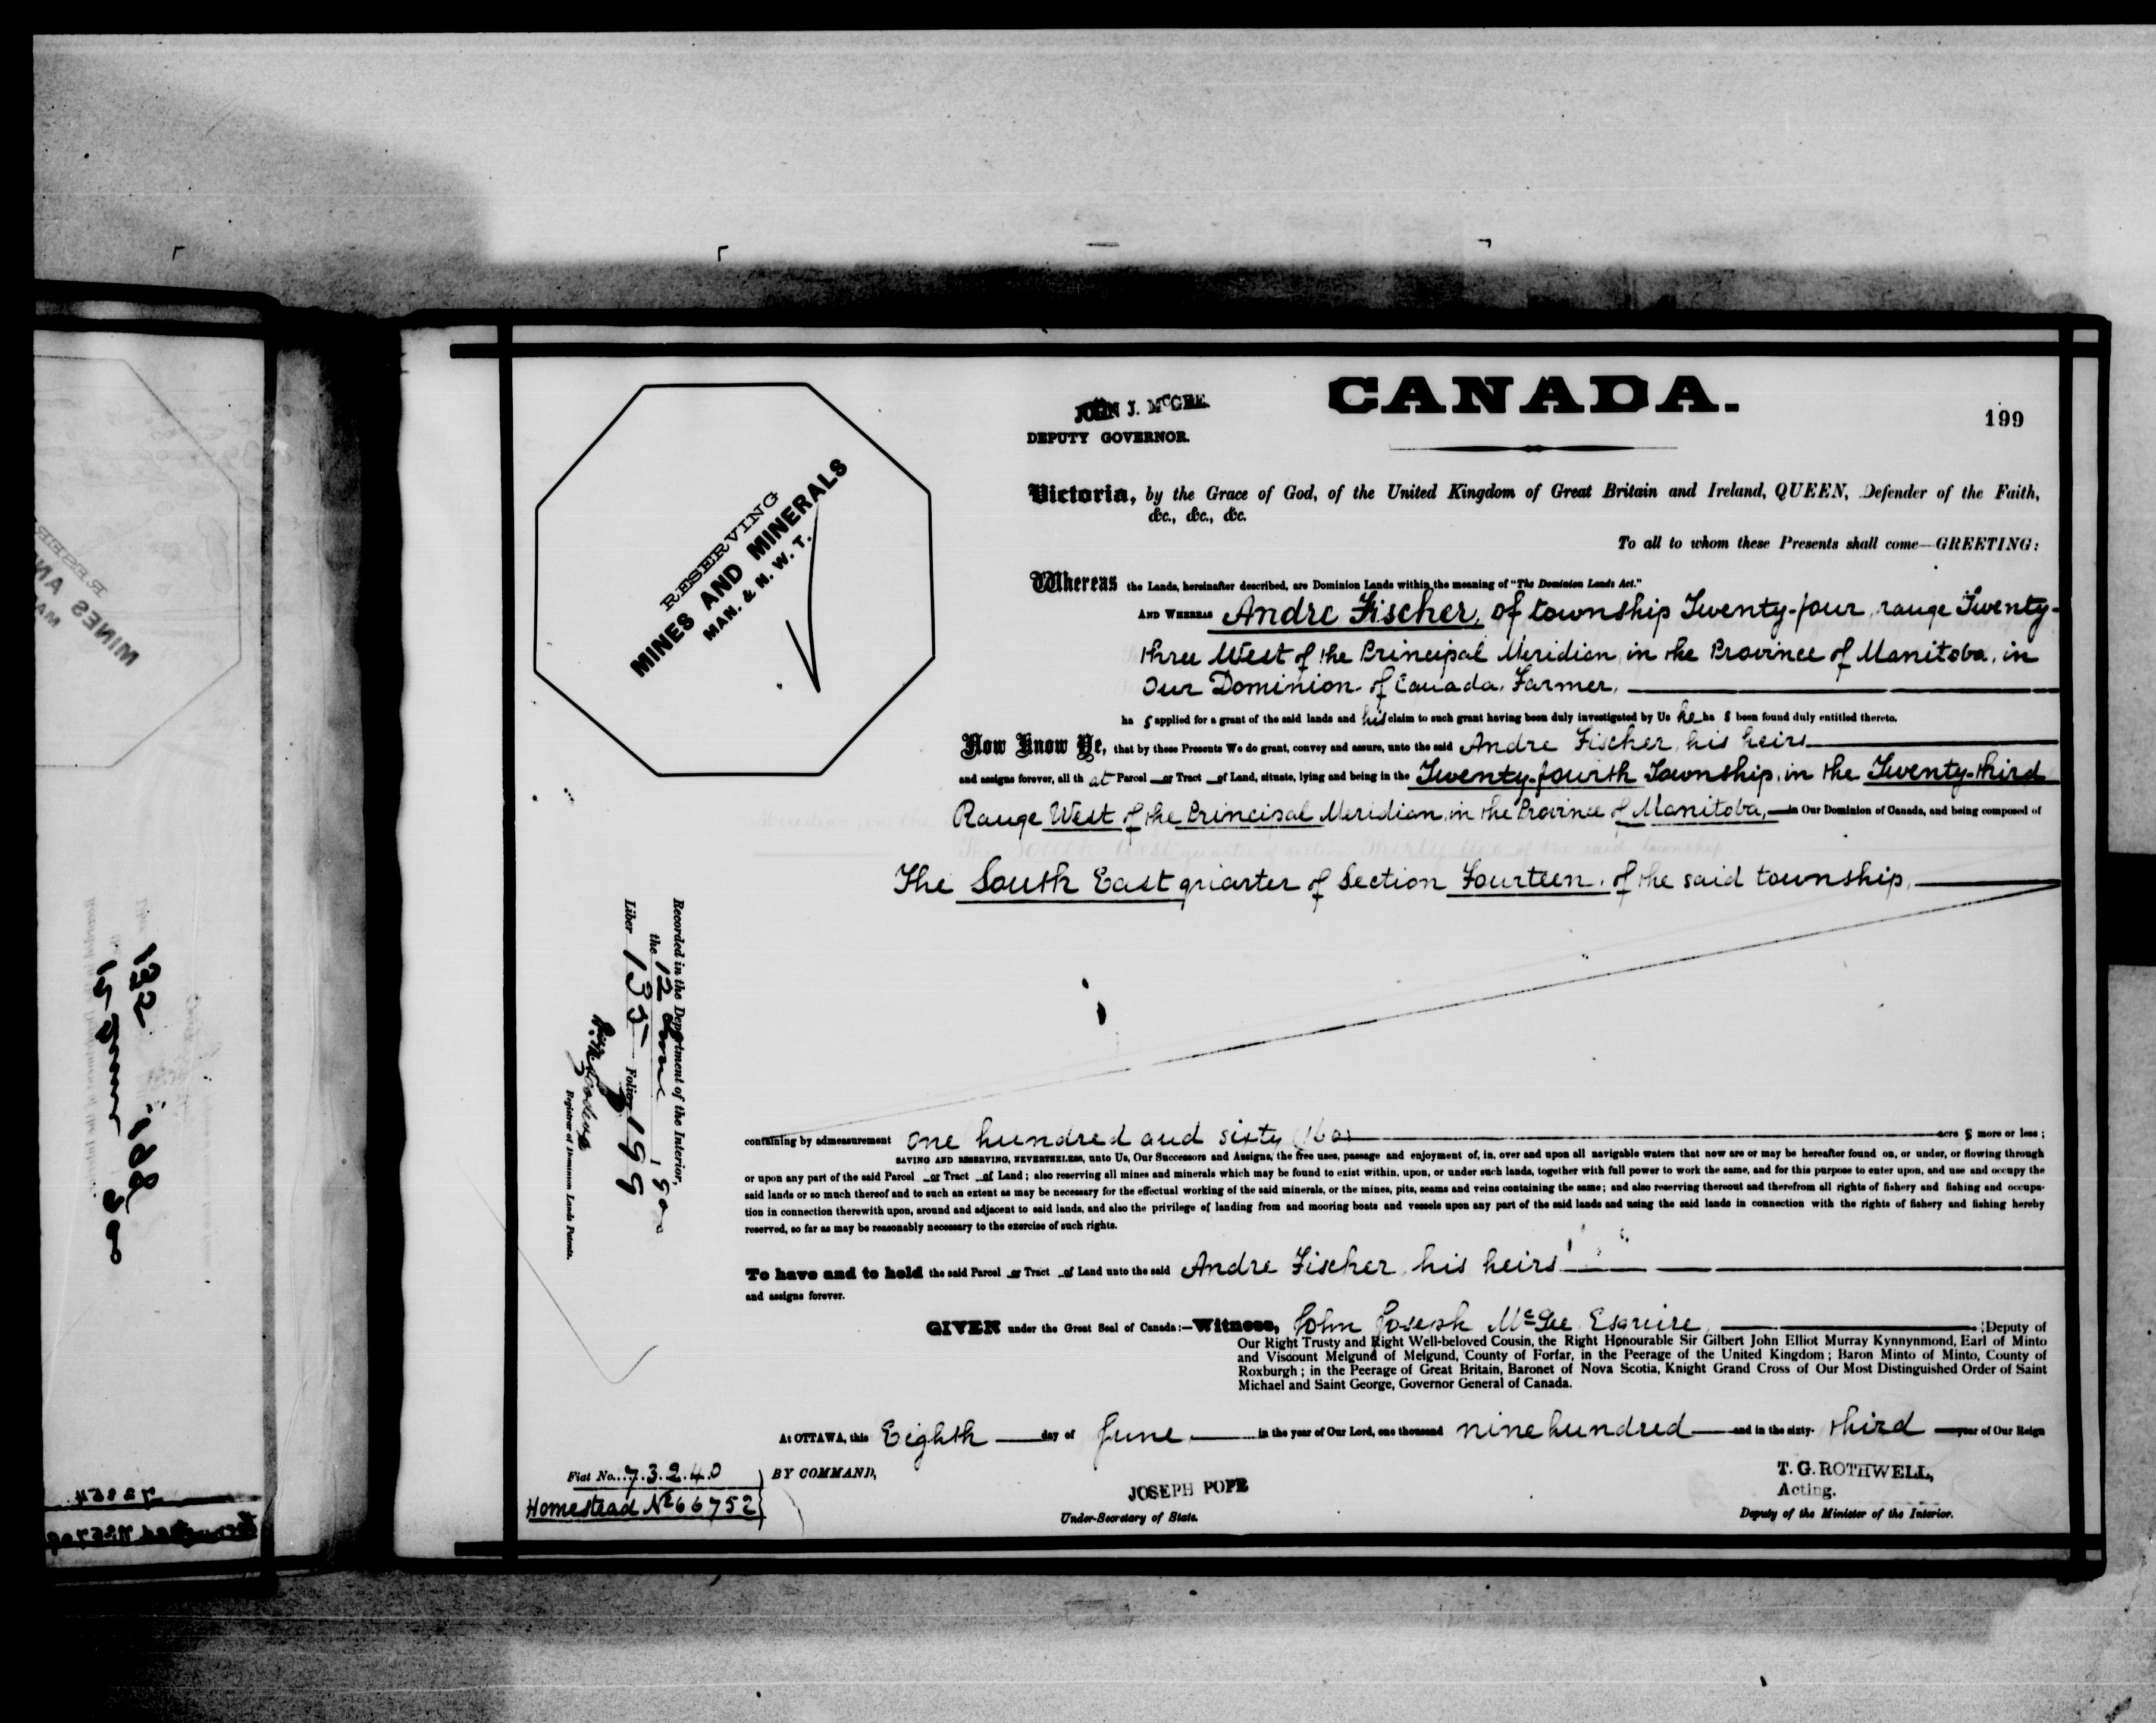 CANADA.
199
JOHN J. McGEE.
DEPUTY GOVERNOR.
RESERVING
MINES AND MINERALS
MAN. & N. W. T.
Victoria, by the Grace of God, of the United Kingdom of Great Britain and Ireland, QUEEN, Defender of the Faith,
&c., &c., &c.
To all to whom these Presents shall come—GREETING:
Whereas the Lands, hereinafter described, are Dominion Lands within the meaning of "The Dominion Lands Act."
AND WHEREAS Andre Fischer, of township Twenty-four, range Twenty-
three West of the Principal Meridian, in the Province of Manitoba, in
Our Dominion of Canada, Farmer,
ha s applied for a grant of the said lands and his claim to such grant having been duly investigated by Us he ha s been found duly entitled thereto.
Now Know Ye, that by these Presents We do grant, convey and assure, unto the said Andre Fischer, his heirs
and assigns forever, all th at Parcel or Tract of Land, situate, lying and being in the Twenty-fourth Township, in the Twenty-third
Range West of the Principal Meridian, in the Province of Manitoba, in Our Dominion of Canada, and being composed of
The South East quarter of Section Fourteen, of the said township,
Recorded in the Department of the Interior,
the 12 June 1900
Liber 135 Folio 199
Registrar of Dominion Lands Patents.
containing by admeasurement one hundred and sixty (160) acre s more or less;
SAVING AND RESERVING, NEVERTHELESS, unto Us, Our Successors and Assigns, the free uses, passage and enjoyment of, in, over and upon all navigable waters that now are or may be hereafter found on, or under, or flowing through
or upon any part of the said Parcel or Tract of Land; also reserving all mines and minerals which may be found to exist within, upon, or under such lands, together with full power to work the same, and for this purpose to enter upon, and use and occupy the
said lands or so much thereof and to such an extent as may be necessary for the effectual working of the said minerals, or the mines, pits, seams and veins containing the same; and also reserving thereout and therefrom all rights of fishery and fishing and occupa-
tion in connection therewith upon, around and adjacent to said lands, and also the privilege of landing from and mooring boats and vessels upon any part of the said lands and using the said lands in connection with the rights of fishery and fishing hereby
reserved, so far as may be reasonably necessary to the exercise of such rights.
To have and to hold the said Parcel or Tract of Land unto the said Andre Fischer, his heirs
and assigns forever.
GIVEN under the Great Seal of Canada:—Witness, John Joseph McGee, Esquire, Deputy of
Our Right Trusty and Right Well-beloved Cousin, the Right Honourable Sir Gilbert John Elliot Murray Kynnynmond, Earl of Minto
and Viscount Melgund of Melgund, County of Forfar, in the Peerage of the United Kingdom; Baron Minto of Minto, County of
Roxburgh; in the Peerage of Great Britain, Baronet of Nova Scotia, Knight Grand Cross of Our Most Distinguished Order of Saint
Michael and Saint George, Governor General of Canada.
At OTTAWA, this Eighth day of June in the year of Our Lord, one thousand nine hundred and in the sixty- third year of Our Reign
Fiat No. 73240
Homestead No 66752
BY COMMAND,
JOSEPH POPE
Under-Secretary of State.
T. G. ROTHWELL,
Acting.
Deputy of the Minister of the Interior.